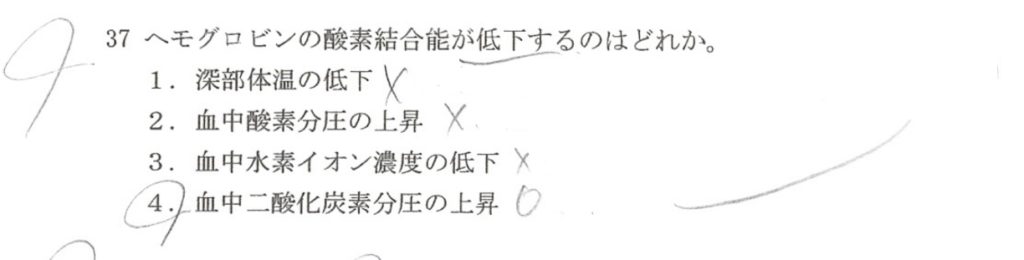 37 ヘモグロビンの酸素結合能が低下するのはどれか。
1．深部体温の低下 ×
2．血中酸素分圧の上昇 ×
3．血中水素イオン濃度の低下 ×
4．血中二酸化炭素分圧の上昇 ○